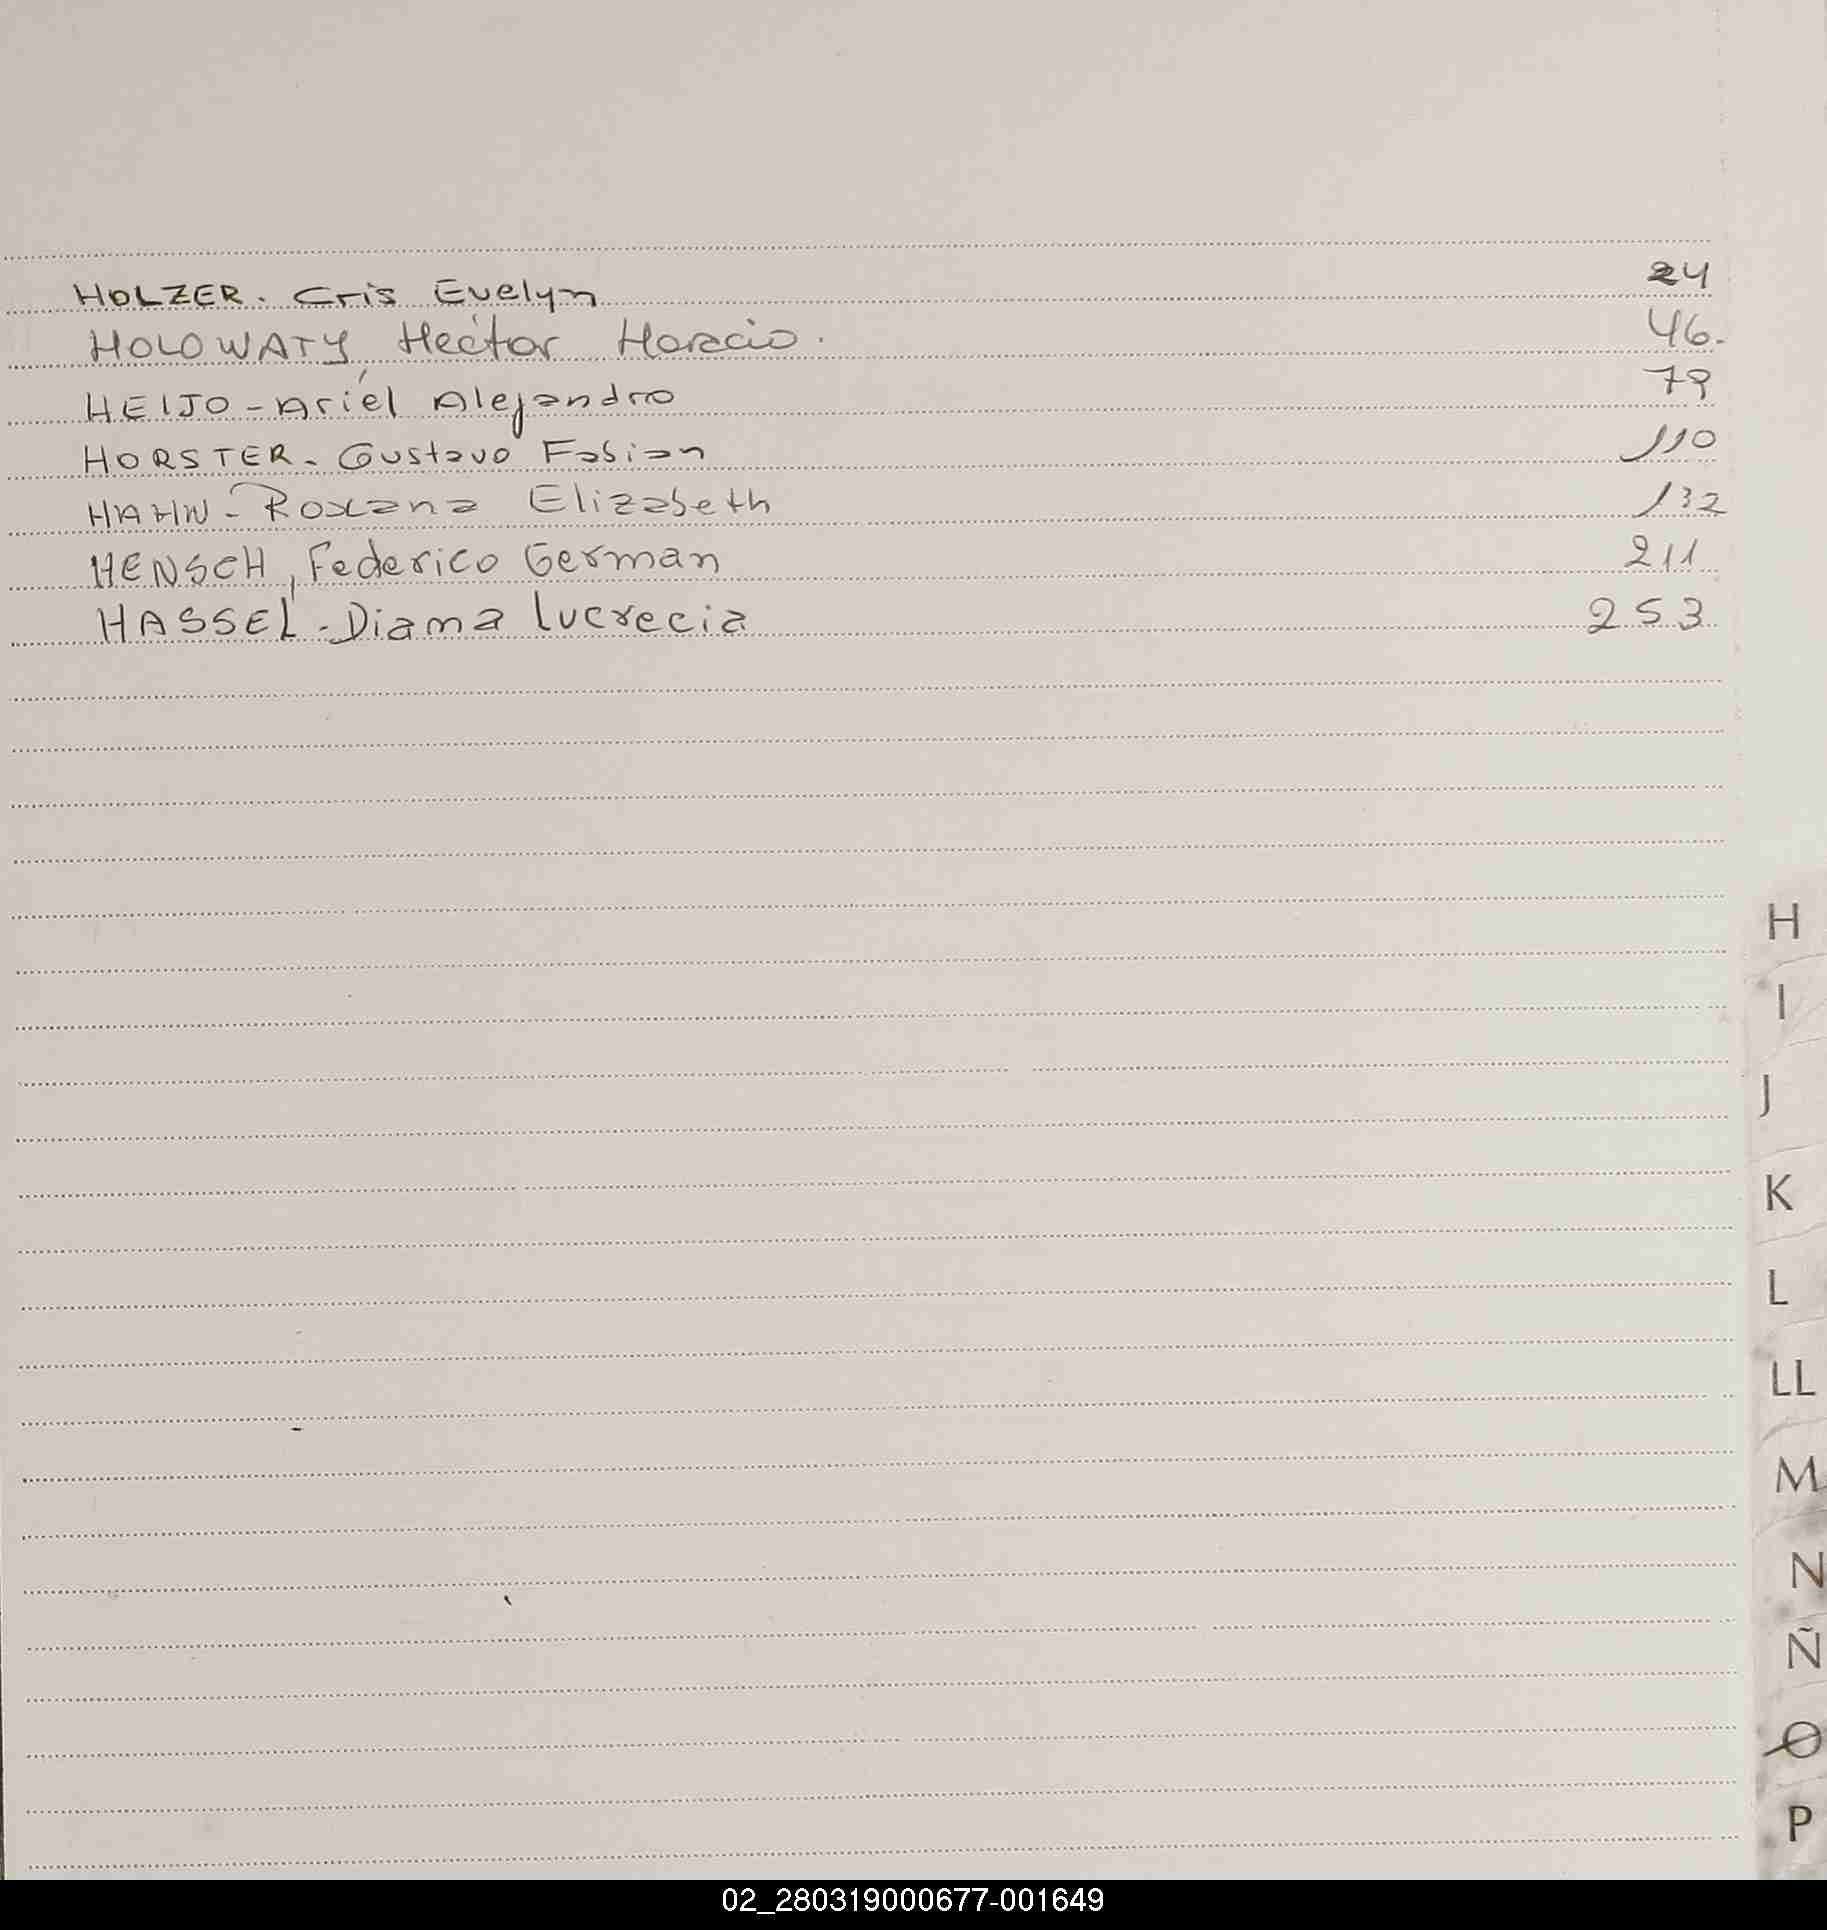 HOLZER. Cris Evelyn 24
HOLOWATY Héctor Horacio. 46.
HEIJO - Ariél Alejandro 79
HORSTER - Gustavo Fabian 110
HAHN - Roxana Elizabeth 132
HENSCH, Federico German 211
HASSEL - Diama Lucrecia 253
H
I
J
K
L
LL
M
N
Ñ
O
P
02_280319000677-001649